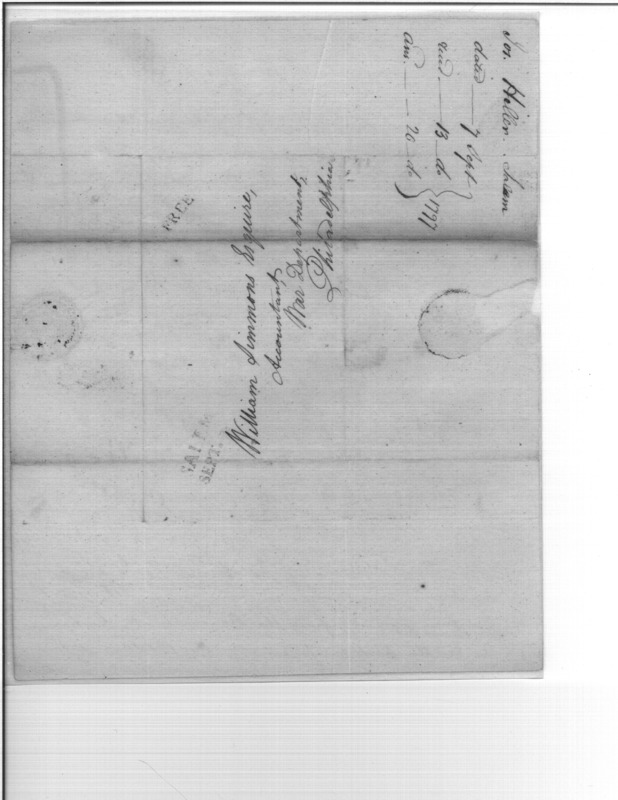 Jos. Hiller. Salem
dated — 7 Sept
recd — 13 do } 1797
ans — 20 do
FREE
SALEM
SEPT.
William Simmons Esquire,
Accountant
War Department,
Philadelphia.